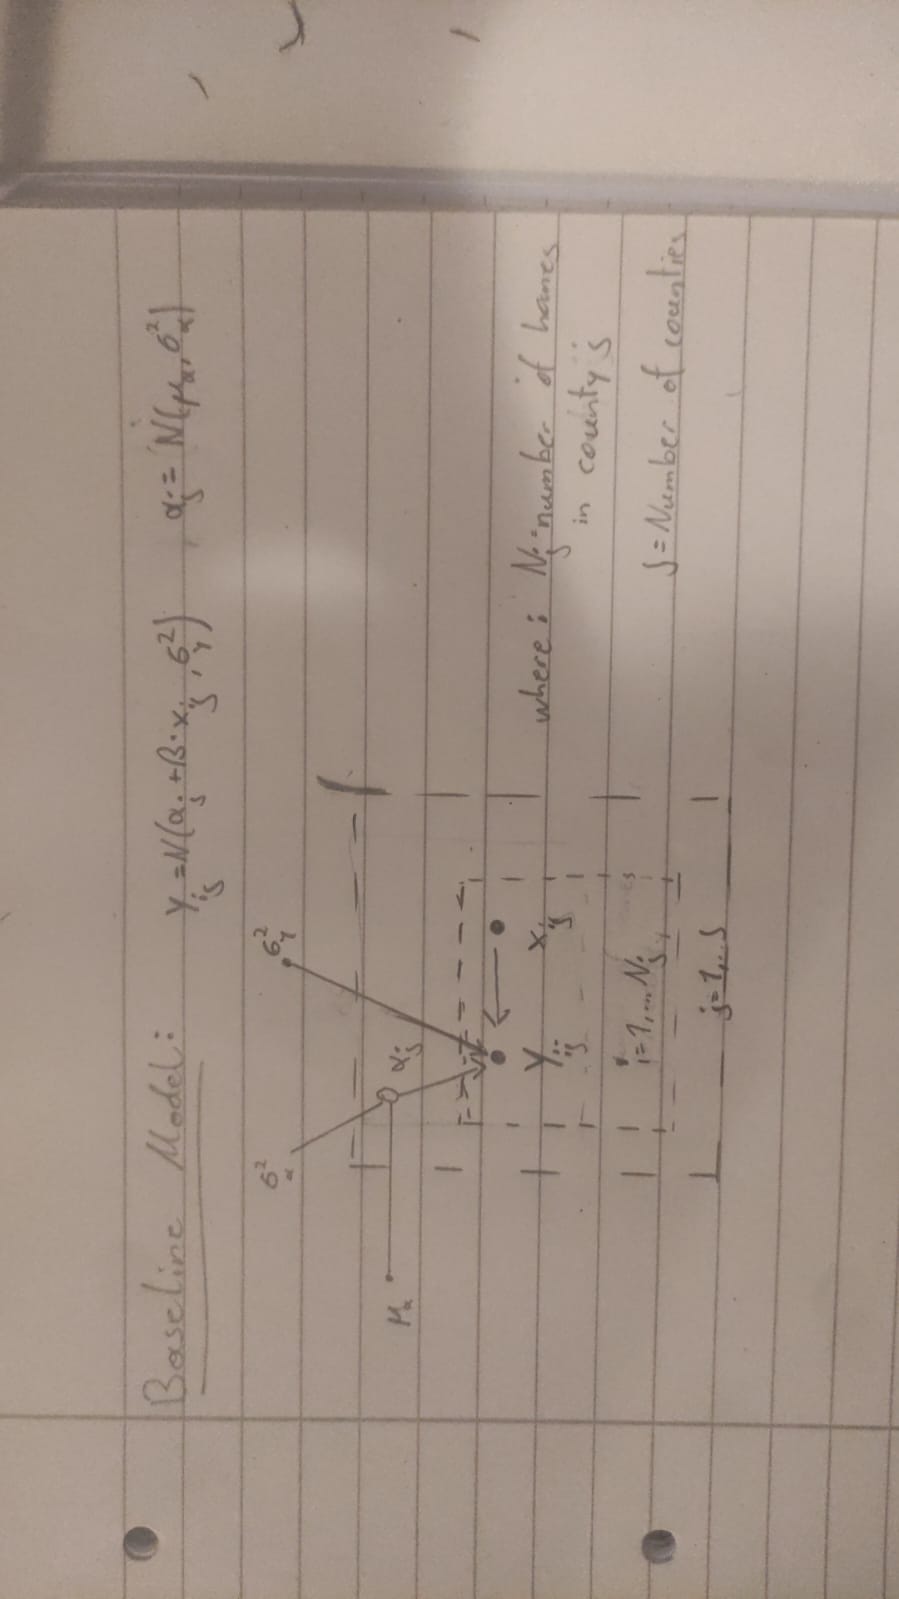 Baseline Model: Yij = N(αj + β·xij, σ²y), αj = N(μα, σ²α)
σ²α σ²y
μα αj
Yij xij
i=1,...Nj
j=1,..J
where: Nj = number of homes
in county j
J = Number of counties